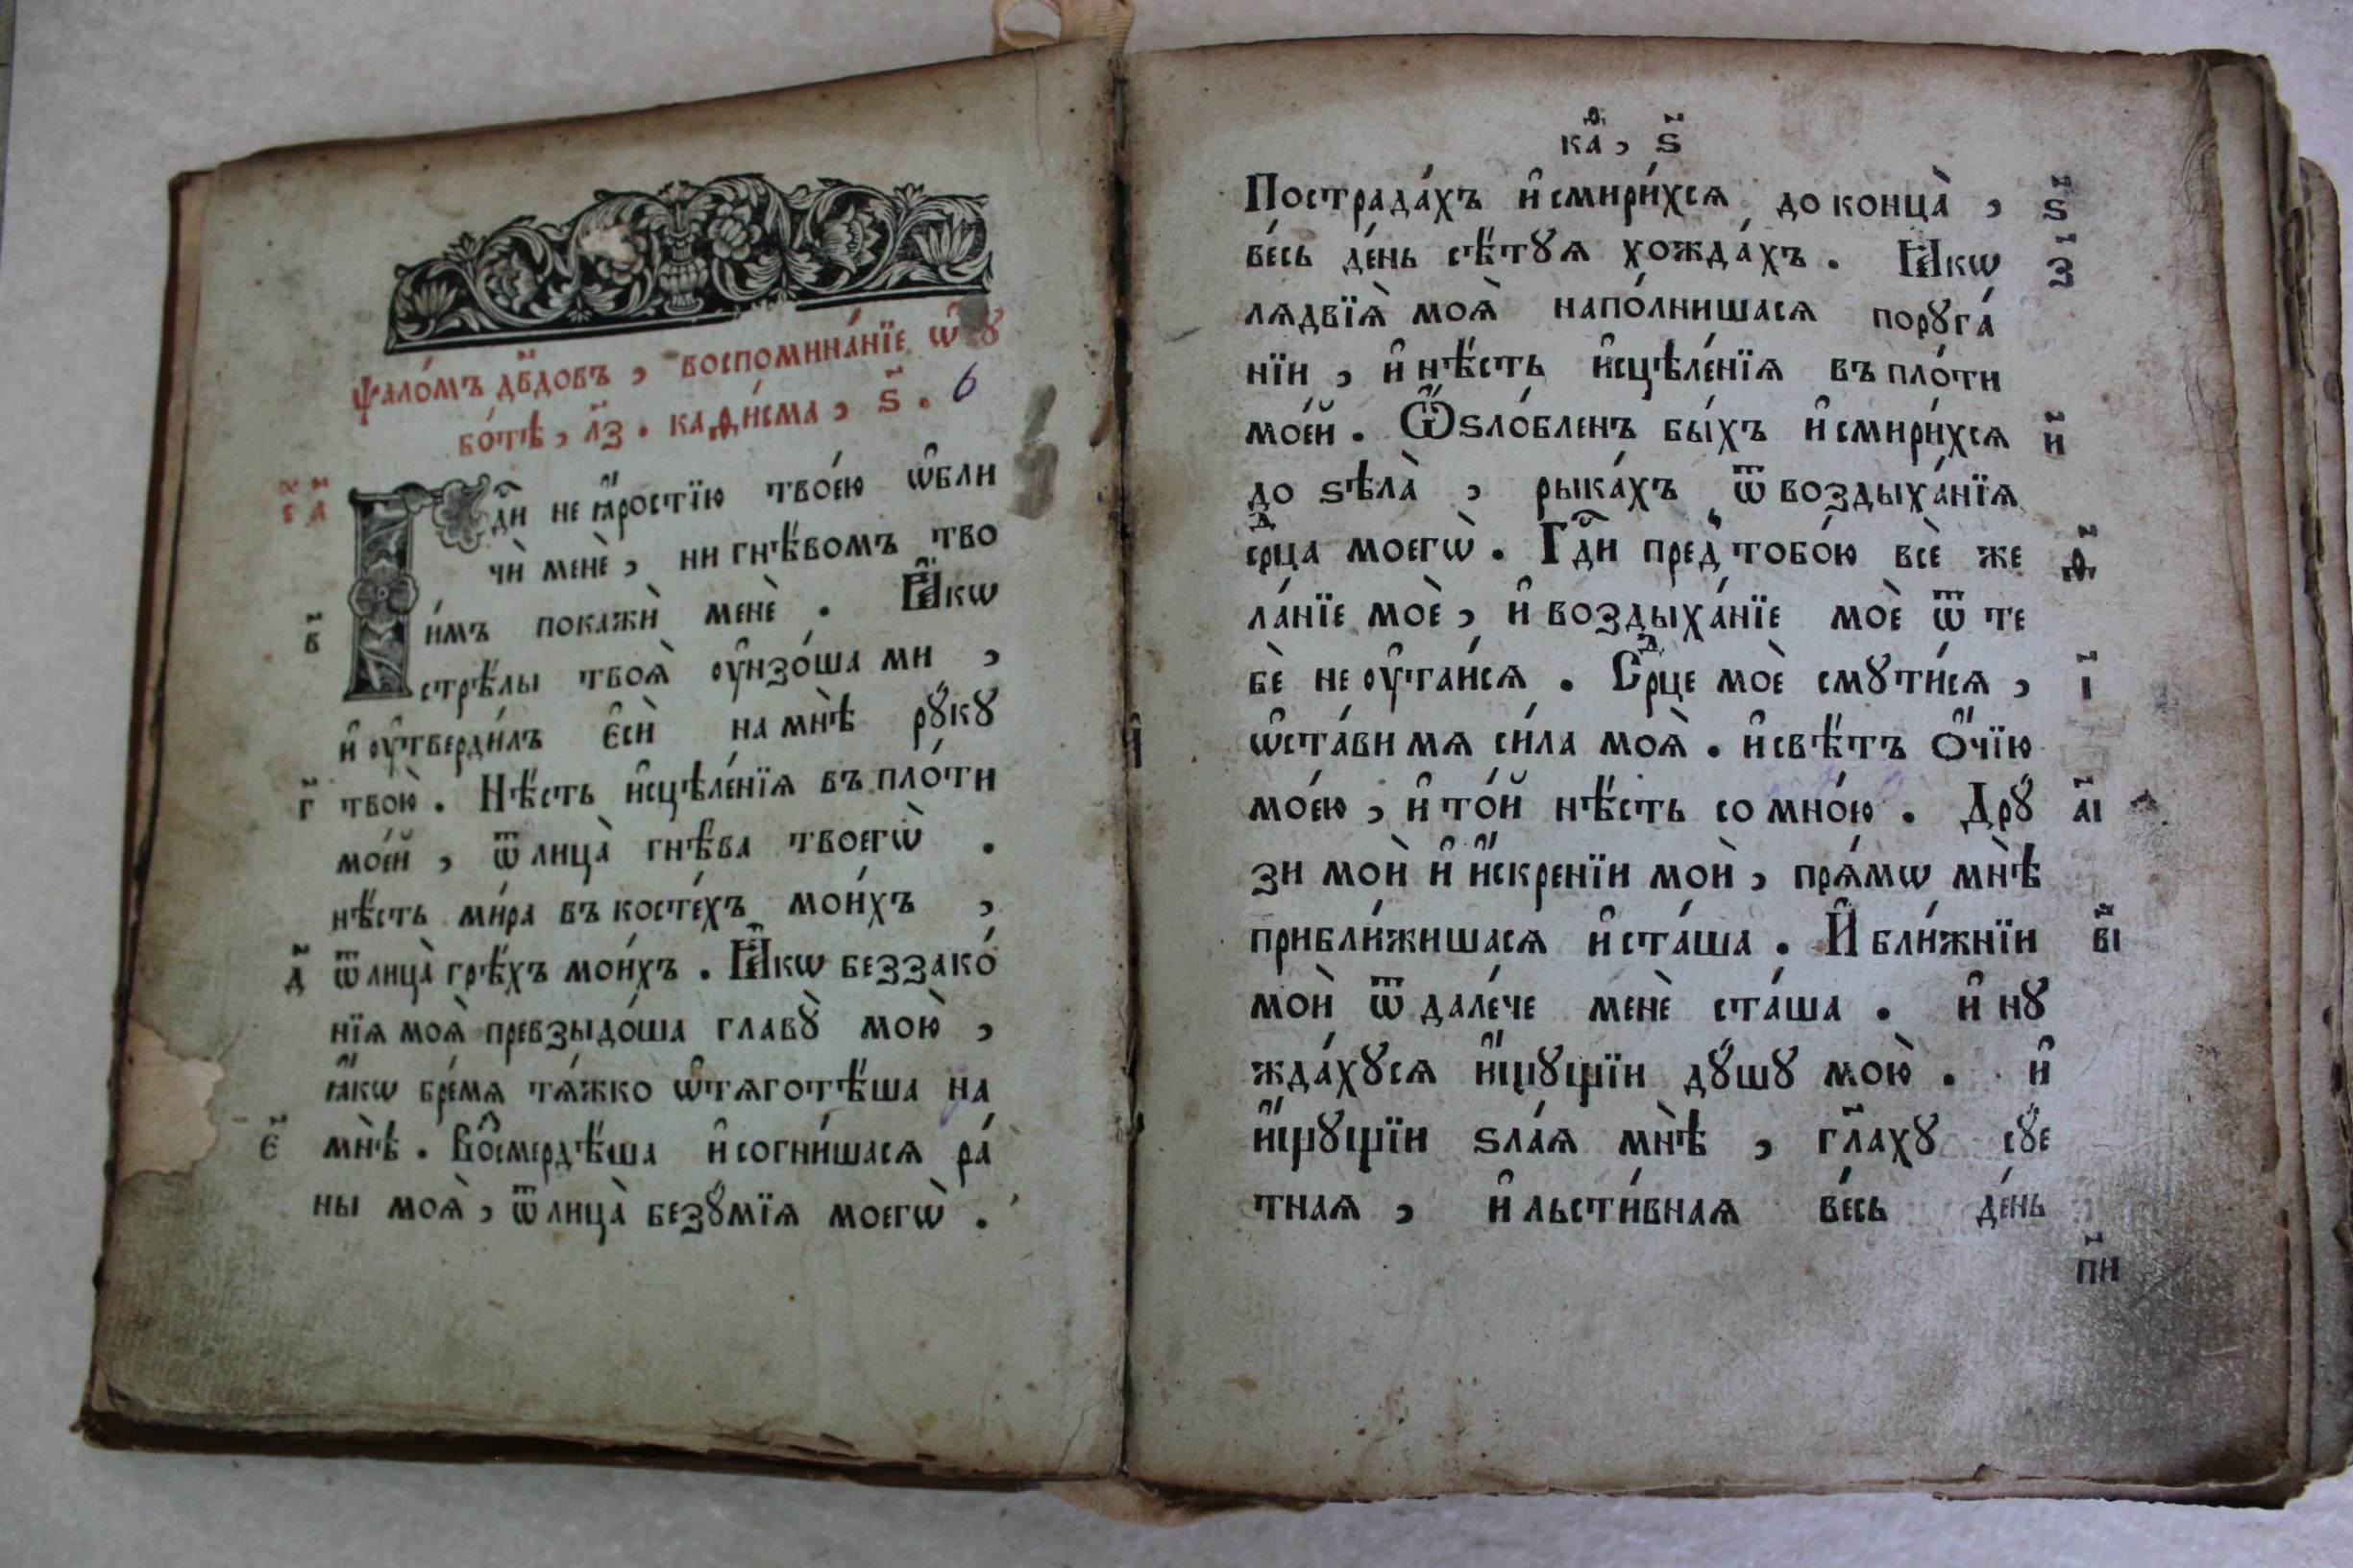 ѱало́мъ дв҃довъ, воспомина́нїе ѡ҆ сꙋ
бо́тѣ, л҃з. каѳи́сма, ѕ҃. 6
с҃ а҃
Гдⷭ҇и не ꙗ҆́ростїю твое́ю ѡ҆бли
чѝ менѐ, ни гнѣ́вомъ тво
и́мъ покажѝ менѐ. Ꙗ҆́кѡ
в҃
стрѣ́лы твоѧ̀ ᲂу҆нзо́ша ми,
и҆ ᲂу҆тверди́лъ є҆сѝ на мнѣ̀ рꙋ́кꙋ
г҃ твою̀. Нѣ́сть и҆сцѣле́нїѧ въ пло́ти
мое́й, ѿ лица̀ гнѣ́ва твоегѡ̀.
нѣ́сть ми́ра въ косте́хъ мои́хъ,
д҃ ѿ лица̀ грѣ́хъ мои́хъ. Ꙗ҆́кѡ беззако́
нїѧ моѧ̀ превзыдо́ша главꙋ̀ мою̀,
ꙗ҆́кѡ бре́мѧ тѧ́жко ѡ҆тѧготѣ́ша на
є҃ мнѣ̀. Восмердѣ́ша и҆ согни́шасѧ ра́
ны моѧ̀, ѿ лица̀ безꙋ́мїѧ моегѡ̀.
каѳ, ѕ҃
Пострада́хъ и҆ смири́хсѧ до конца̀, ѕ҃
ве́сь де́нь сѣ́тꙋѧ хожда́хъ. Ꙗ҆́кѡ з҃
лѧдвїѧ̀ моѧ̀ напо́лнишасѧ порꙋга́
нїи, и҆ нѣ́сть и҆сцѣле́нїѧ въ пло́ти
мое́й. Ѿѕло́бленъ бы́хъ и҆ смири́хсѧ и҃
до ѕѣла̀, рыка́хъ ѿ воздыха́нїѧ
срⷣца моегѡ̀. Гдⷭ҇и пред̾ тобо́ю всѐ же ѳ҃
ла́нїе моѐ, и҆ воздыха́нїе моѐ ѿ те
бѐ не ᲂу҆таи́сѧ. Срⷣце моѐ смꙋти́сѧ, і҃
ѡ҆ста́ви мѧ си́ла моѧ̀. и҆ свѣ́тъ ѻ҆́чїю
мое́ю, и҆ то́й нѣ́сть со мно́ю. Дрꙋ́ а҃і
зи моѝ и҆ и҆́скренїи моѝ, прѧ́мѡ мнѣ̀
прибли́жишасѧ и҆ ста́ша. И҆ бли́жнїи в҃і
моѝ ѿ дале́че менѐ ста́ша. и҆ нꙋ
жда́хꙋсѧ и҆́щꙋщїи дꙋ́шꙋ мою̀. и҆
и҆́щꙋщїи ѕла́ѧ мнѣ̀, гл҃ахꙋ сꙋ́е
тнаѧ, и҆ льсти́внаѧ ве́сь де́нь
п҃и